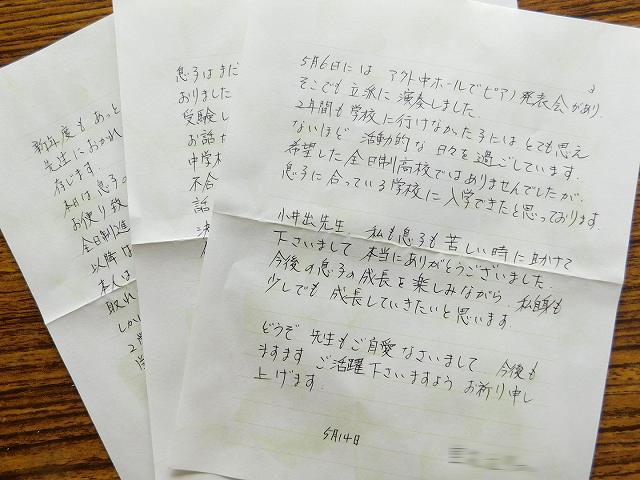 新年度もあっと
先生におかれ
存じます。
本日は息子の
お便り致
全日制進
以降な
本人は
取れ
しか
2学
学
息子はまだ
おりました
受験し
お話せ
中学木
不合
話し
決
3
5月6日には アクト中ホールでピアノ発表会があり、
そこでも立派に演奏しました。
2年間も学校に行けなかった子にはとても思え
ないほど 活動的な日々を過ごしています。
希望した全日制高校ではありませんでしたが、
息子に合っている学校に入学できたと思っております。
小井出先生、私も息子も苦しい時に助けて
下さいまして本当にありがとうございました。
今後の息子の成長を楽しみながら、私自身も
少しでも成長していきたいと思います。
どうぞ 先生もご自愛なさいまして 今後も
ますます ご活躍下さいますよう お祈り申し
上げます。
5月14日